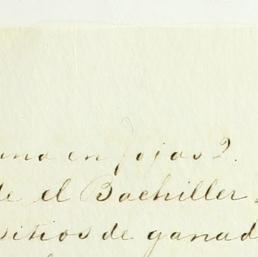 en fojas 2.
de el Bachiller
sitios de ganad